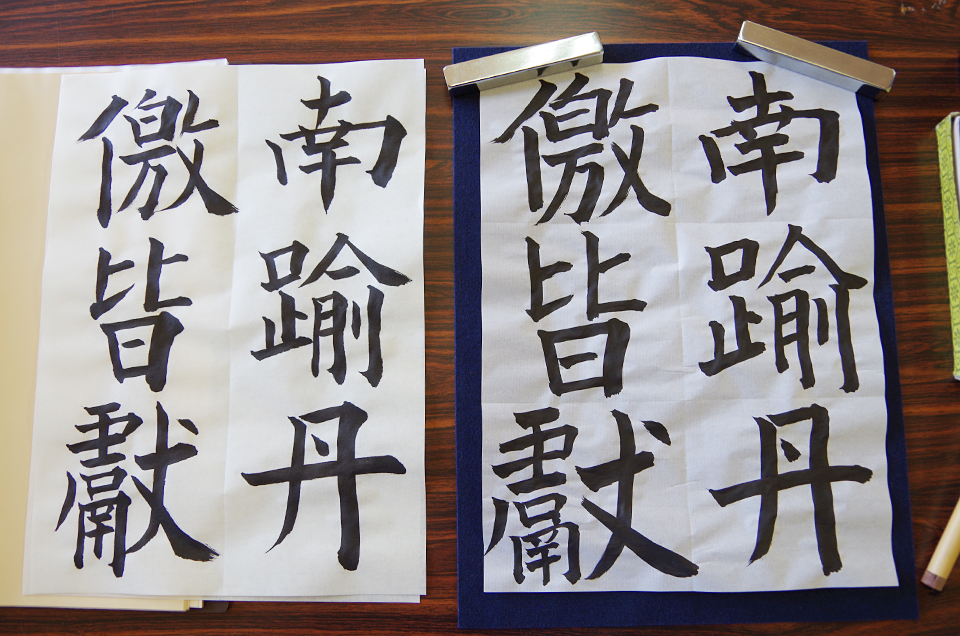 南踰丹
儌皆獻
南踰丹
儌皆獻